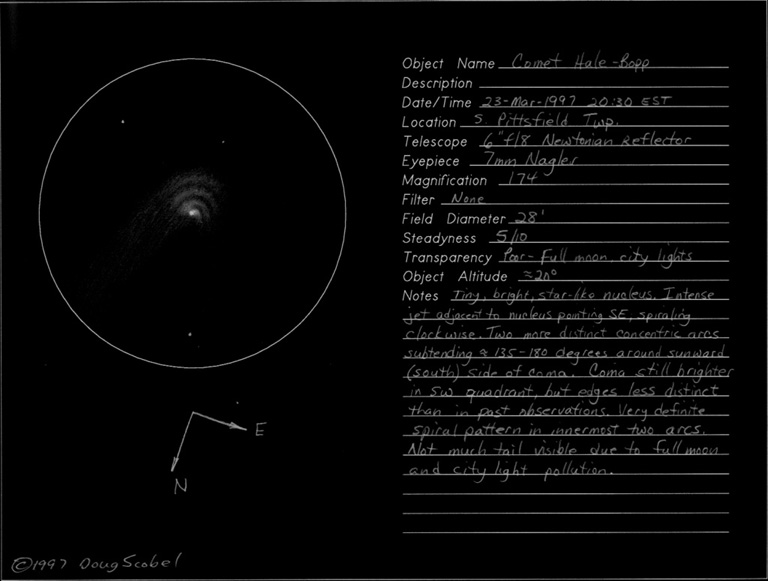 Object Name Comet Hale-Bopp
Description
Date/Time 23-Mar-1997 20:30 EST
Location S. Pittsfield Twp.
Telescope 6" f/8 Newtonian Reflector
Eyepiece 7mm Nagler
Magnification 174
Filter None
Field Diameter 28'
Steadyness 5/10
Transparency Poor - Full moon, city lights
Object Altitude ≈20°
Notes Tiny, bright, star-like nucleus. Intense
jet adjacent to nucleus pointing SE, spiraling
clockwise. Two more distinct concentric arcs
subtending ≈ 135-180 degrees around sunward
(south) side of coma. Coma still brighter
in SW quadrant, but edges less distinct
than in past observations. Very definite
spiral pattern in innermost two arcs.
Not much tail visible due to full moon
and city light pollution.
E
N
©1997 Doug Scobel